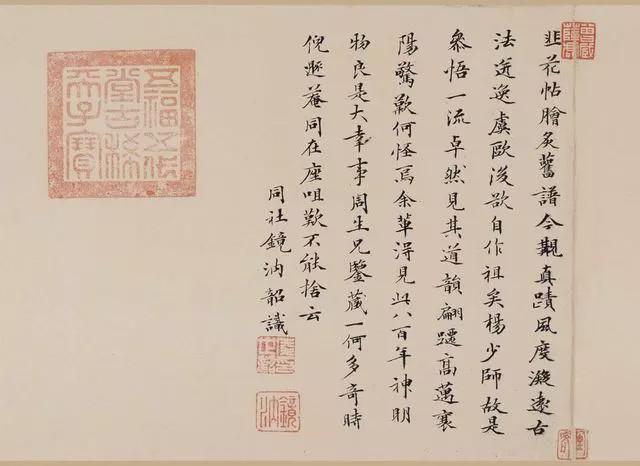 韭花帖膾炙舊譜今觀真蹟風度凝遠古
法迸逸虞歐後欲自作祖矣楊少師故是
參悟一流卓然見其道韻翩躚高邁襄
陽驚歎何怪焉余輩得見此八百年神明
物良是大幸事周生兄鑒藏一何多奇時
倪遯菴同在座咀歎不能捨云
同社鏡汭韶識
鏡汭
五福五代
堂古稀
天子寶